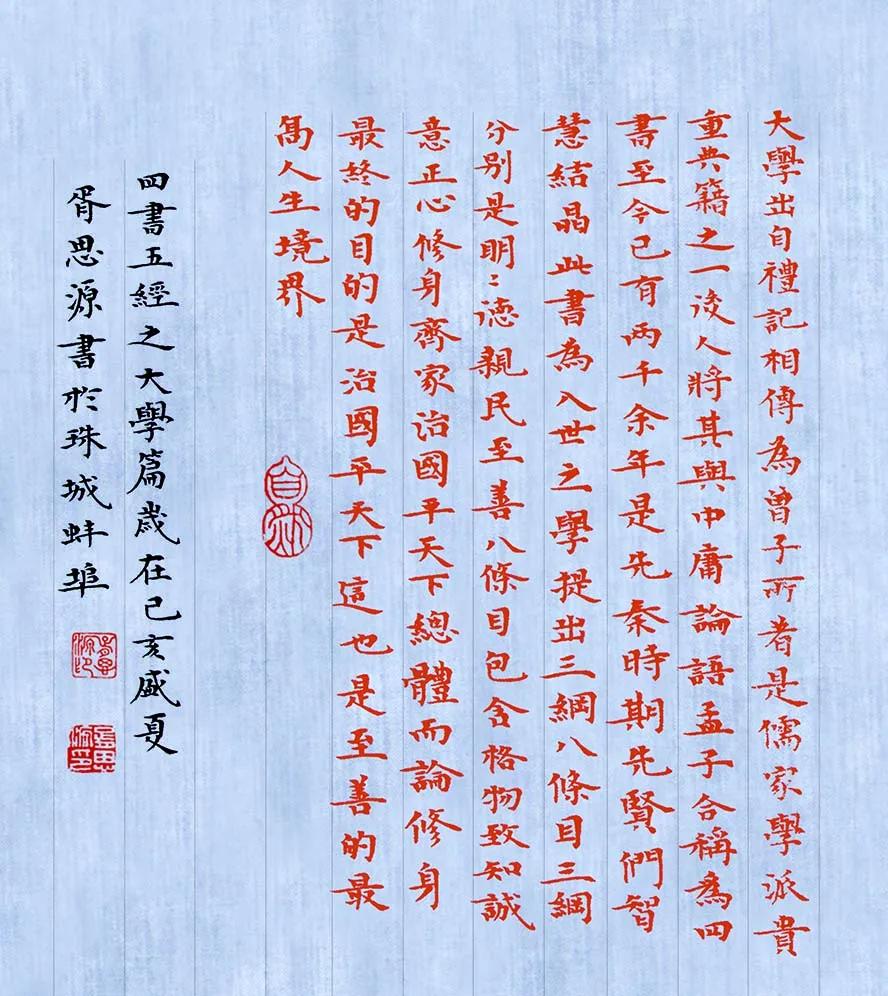 大學出自禮記相傳為曾子所者是儒家學派貴
重典籍之一後人將其與中庸論語孟子合稱為四
書至今已有兩千余年是先秦時期先賢們智
慧結晶此書為入世之學提出三綱八條目三綱
分別是明〻德親民至善八條目包含格物致知誠
意正心修身齊家治國平天下總體而論修身
最終的目的是治國平天下這也是至善的最
高人生境界
自然
四書五經之大學篇歲在己亥盛夏
胥思源書於珠城蚌埠